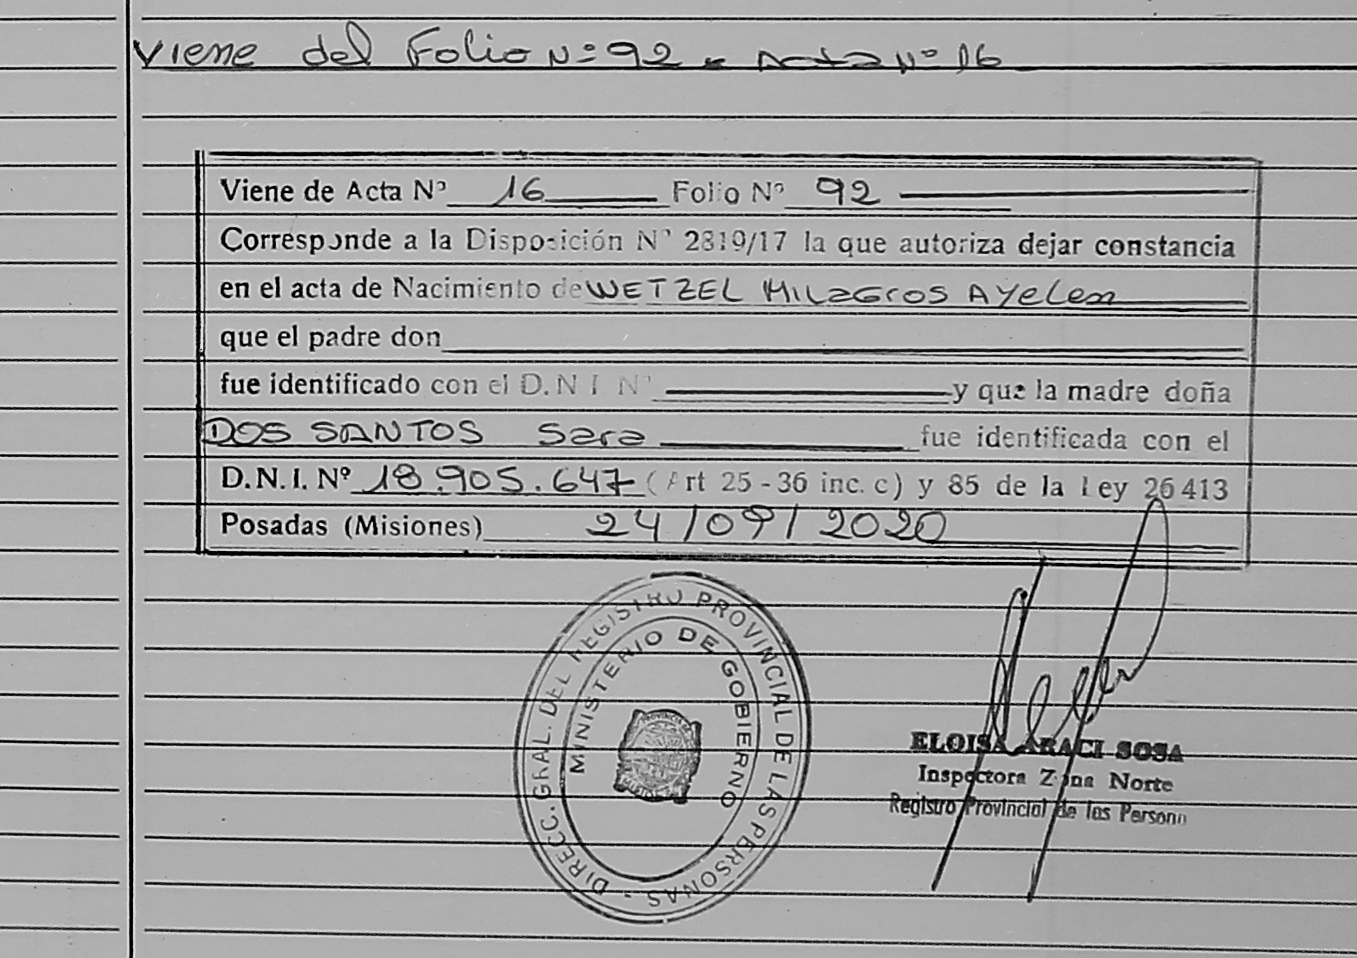 Viene del Folio Nº 92 - Acta Nº 16
Viene de Acta Nº 16 Folio Nº 92
Corresponde a la Disposición Nº 2819/17 la que autoriza dejar constancia
en el acta de Nacimiento de WETZEL MILAGROS AYELEN
que el padre don
fue identificado con el D.N.I Nº y que la madre doña
DOS SANTOS Sara fue identificada con el
D.N.I. Nº 18.905.647 (Art 25 - 36 inc. c) y 85 de la Ley 26413
Posadas (Misiones) 24/09/2020
DIRECC. GRAL. DEL REGISTRO PROVINCIAL DE LAS PERSONAS -
MINISTERIO DE GOBIERNO
ELOISA ARACI SOSA
Inspectora Zona Norte
Registro Provincial de las Persona